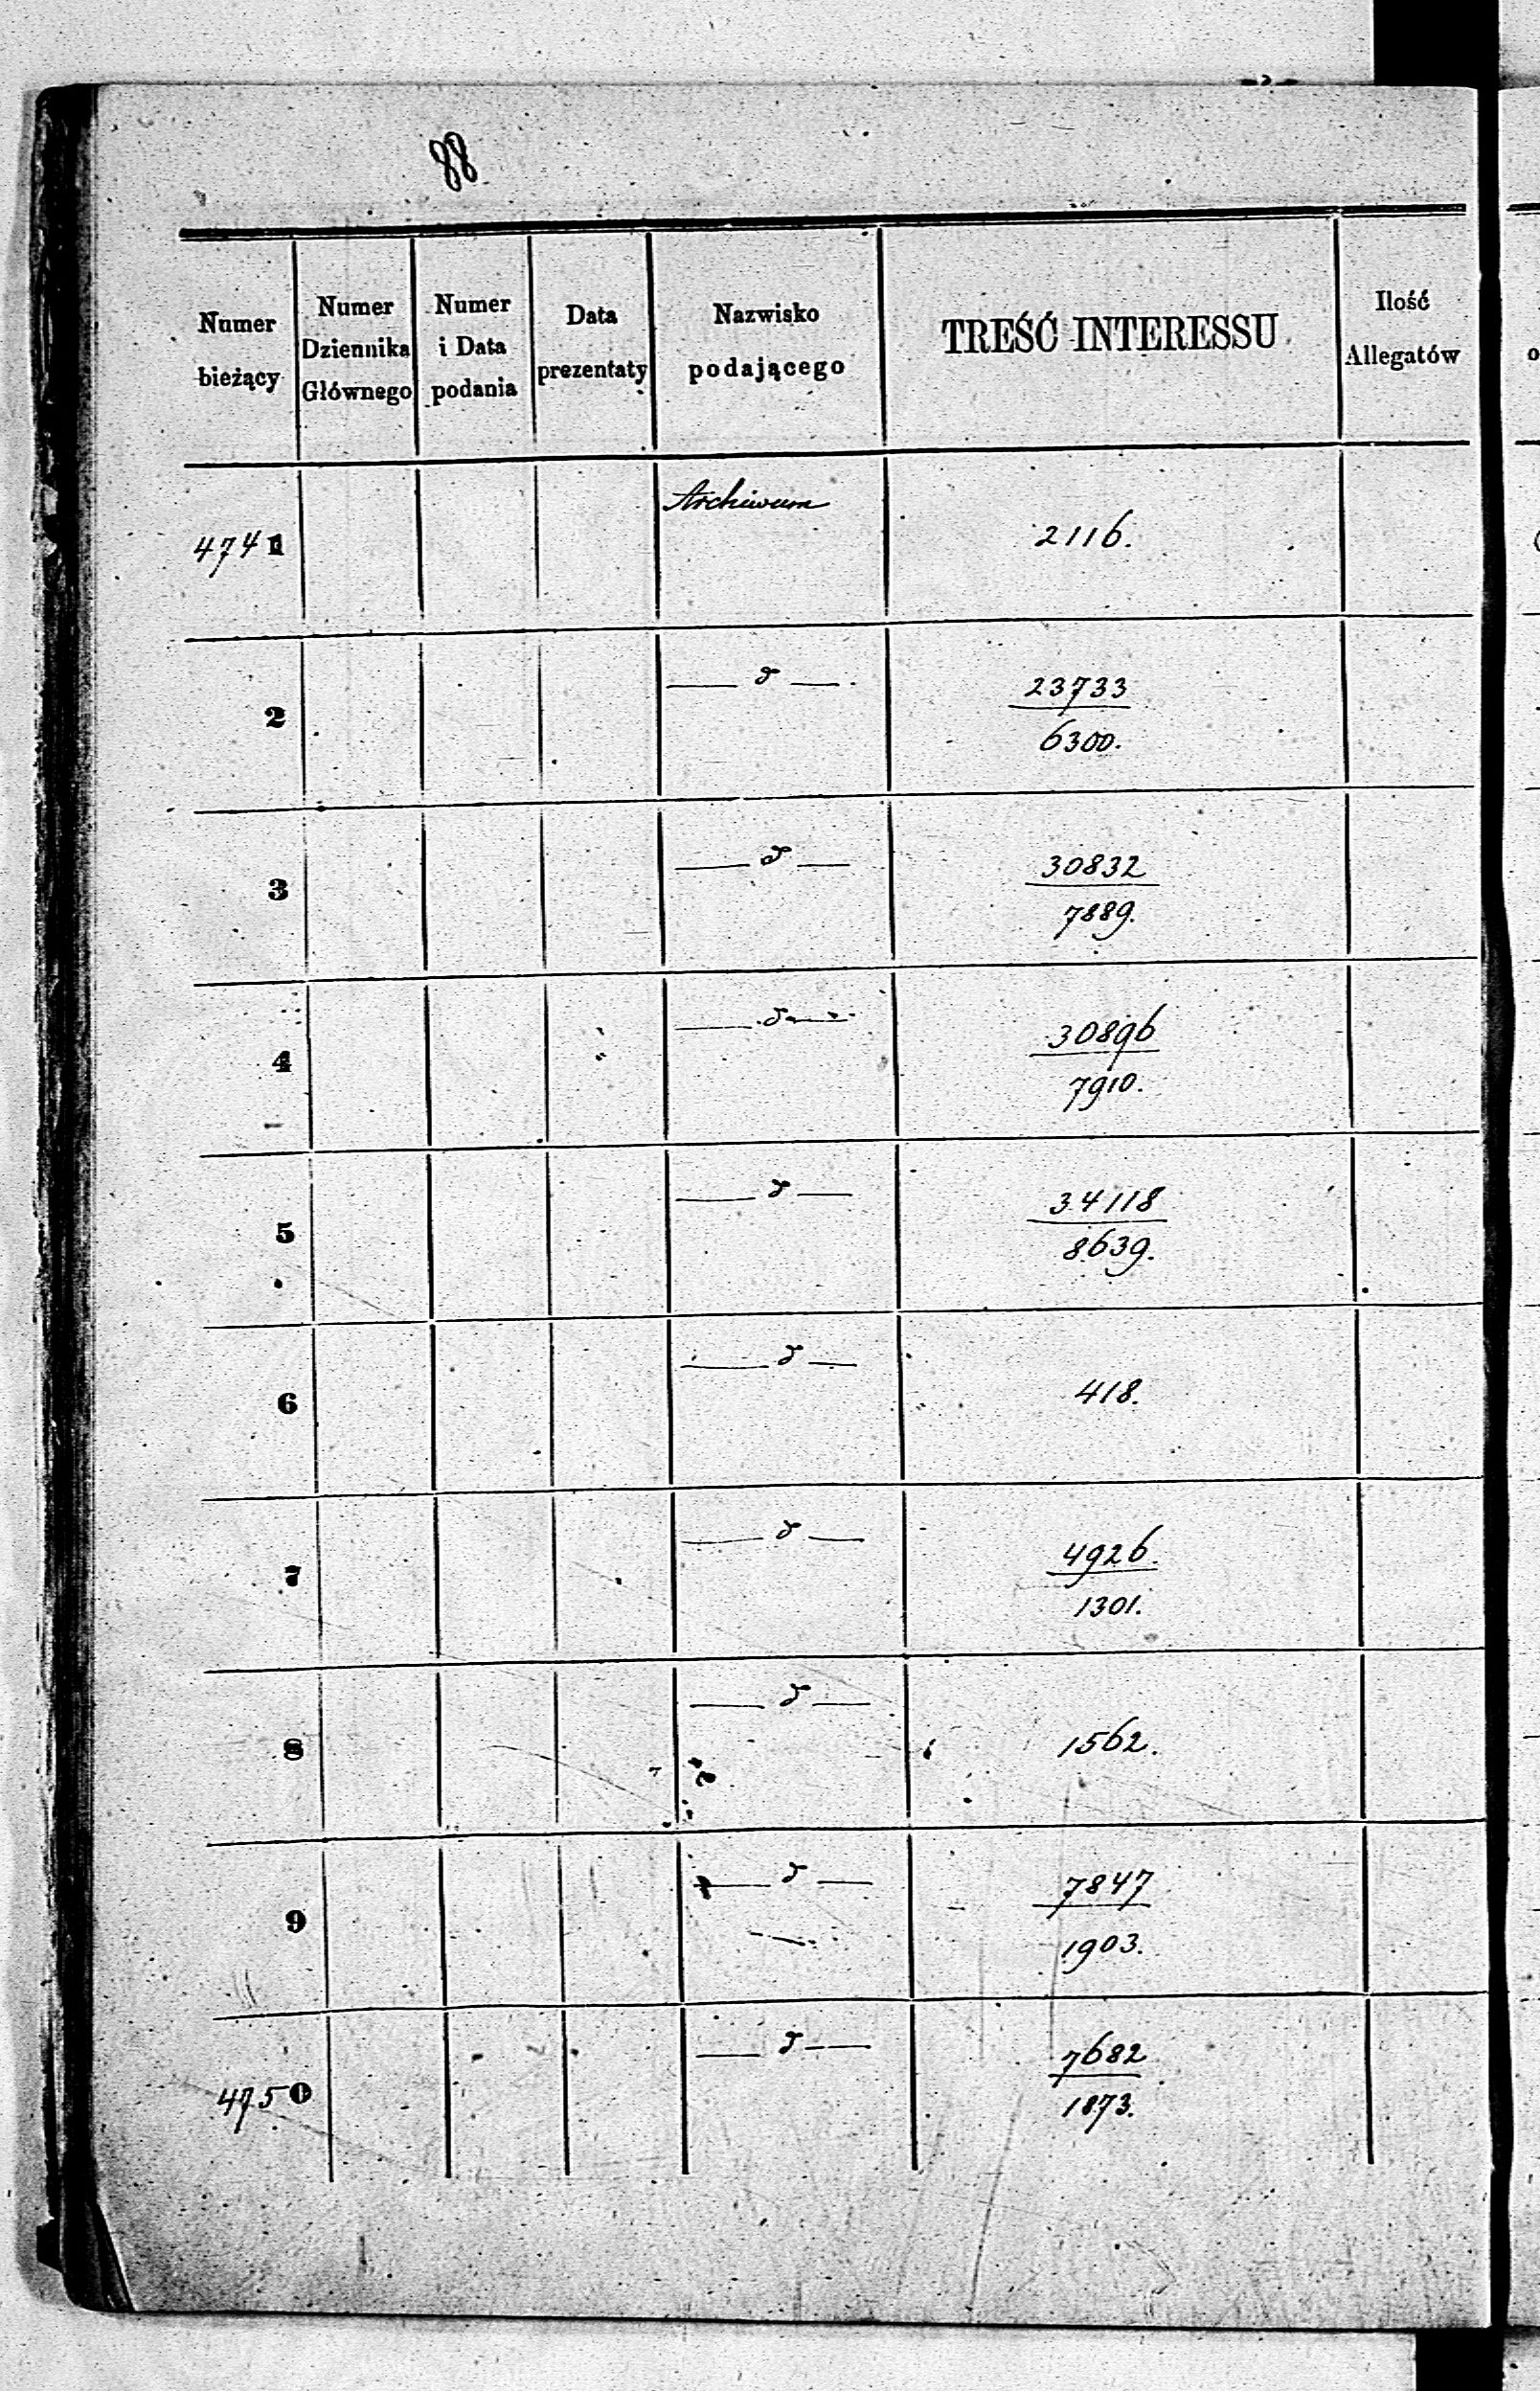 88
Numer bieżący
Numer Dziennika Głównego
Numer i Data podania
Data prezentaty
Nazwisko podającego
TREŚĆ INTERESSU
Ilość Allegatów
4741 Archiwum 2116.
2 — d — 23733
6300.
3 — d — 30832
7889.
4 — d — 30896
7910.
5 — d — 34118
8639.
6 — d — 418.
7 — d — 4926.
1301.
8 — d — 1562.
9 — d — 7847
1903.
4750 — d — 7682
1873.